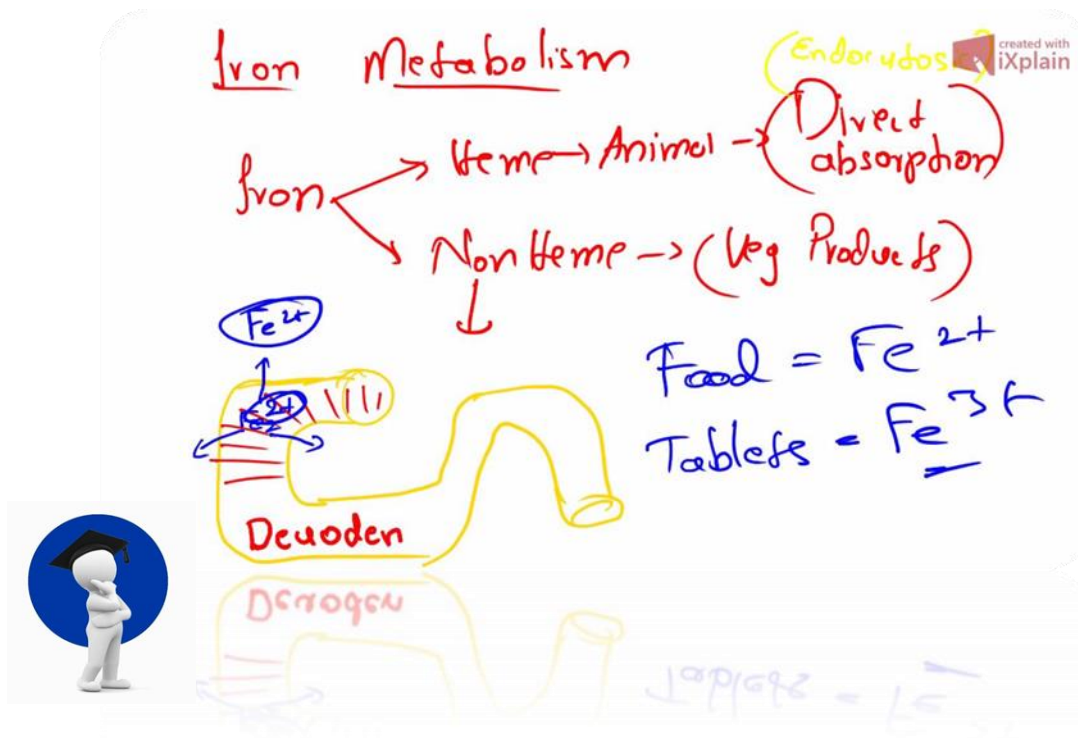 Iron Metabolism
(Endocytosis)
created with
iXplain
Iron
Heme → Animal → (Direct absorption)
Non Heme → (Veg Products)
Fe 2+
Fe 2+
Food = Fe 2+
Tablets = Fe 3+